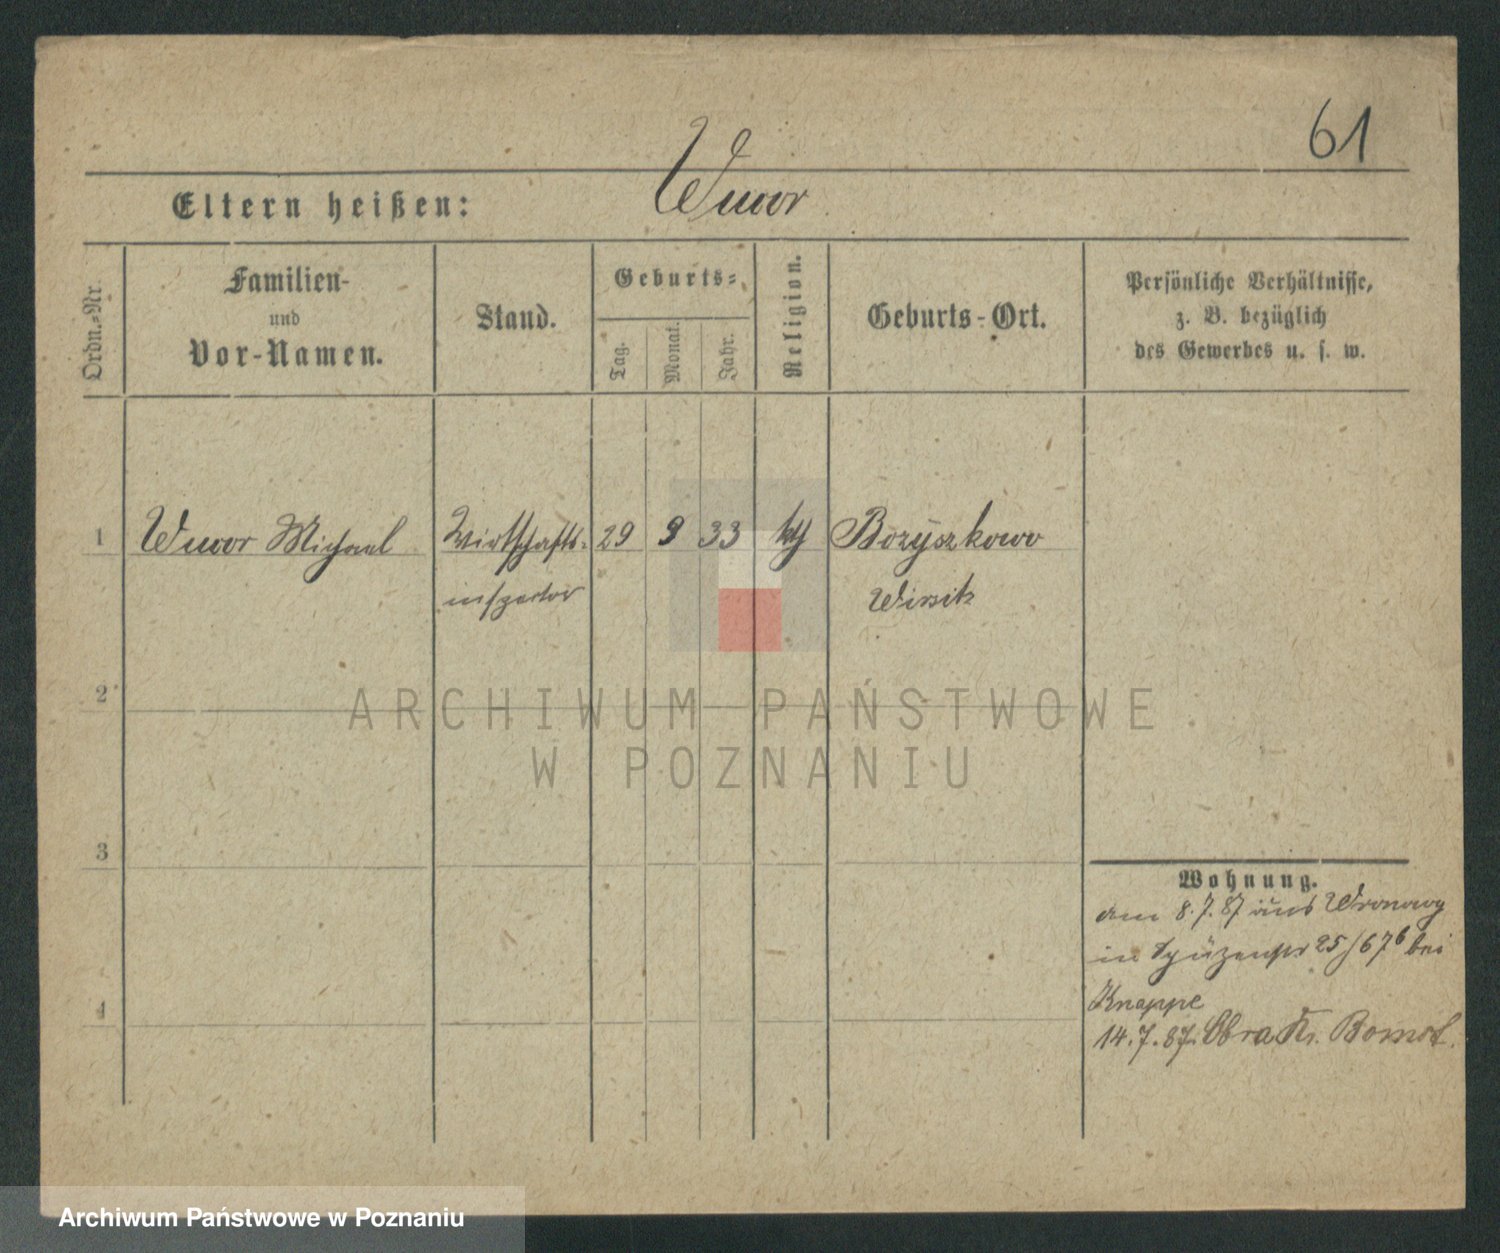 61
Eltern heißen: Uwor
Ordn.-Nr.
Familien-
und
Vor-Namen.
Stand.
Geburts-
Tag.
Monat.
Jahr.
Religion.
Geburts-Ort.
Persönliche Verhältnisse,
z. B. bezüglich
des Gewerbes u. s. w.
1 Michael Wirtschafts- 29 9 33 kth Bozyszkowo
inspector Wirsitz
2
3
4
Wohnung.
am 8.7.87 aus
in 25/26 bei
Knappe
14.7.87. Obra Kr. Bomst.
ARCHIWUM PAŃSTWOWE
W POZNANIU
Archiwum Państwowe w Poznaniu